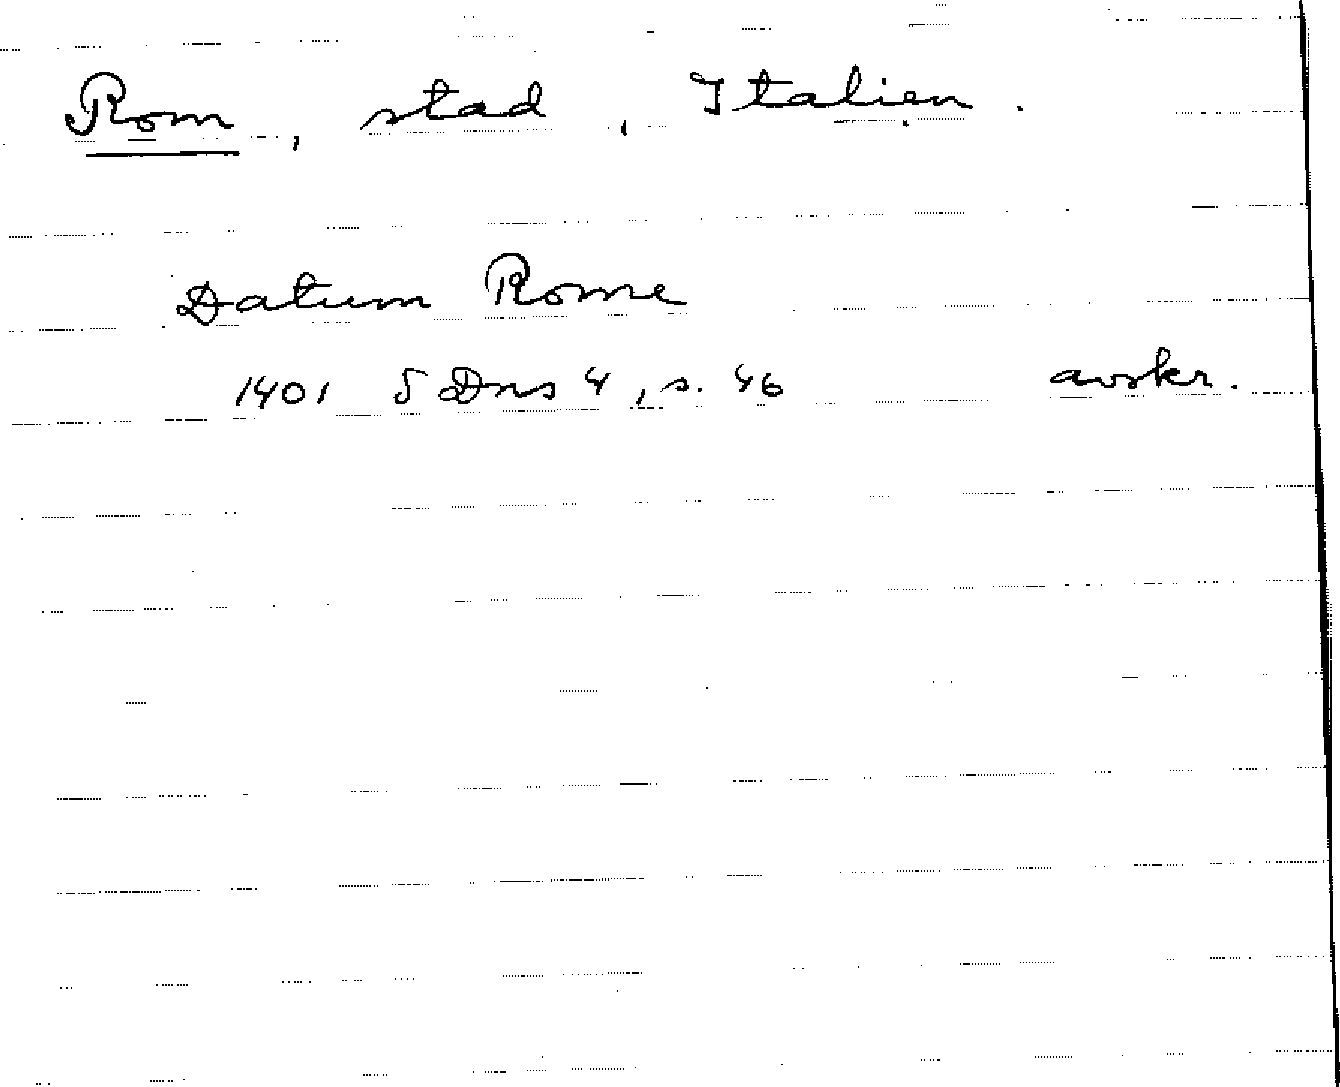 Rom, stad, Italien.
Datum Rome
1401 5 Dns 4, s. 46 avskr.